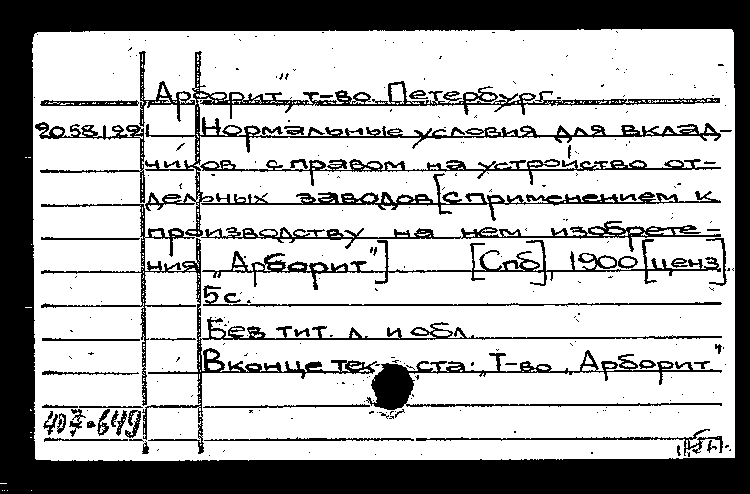 „Арборит", т-во. Петербург.
Нормальные условия для вклад-
чиков с правом на устройство от-
дельных заводов [с применением к
производству на нем изобрете-
ния „Арборит"] [Спб], 1900 [ценз]
5 с.
Без тит. л. и обл.
В конце текста: „Т-во „Арборит"